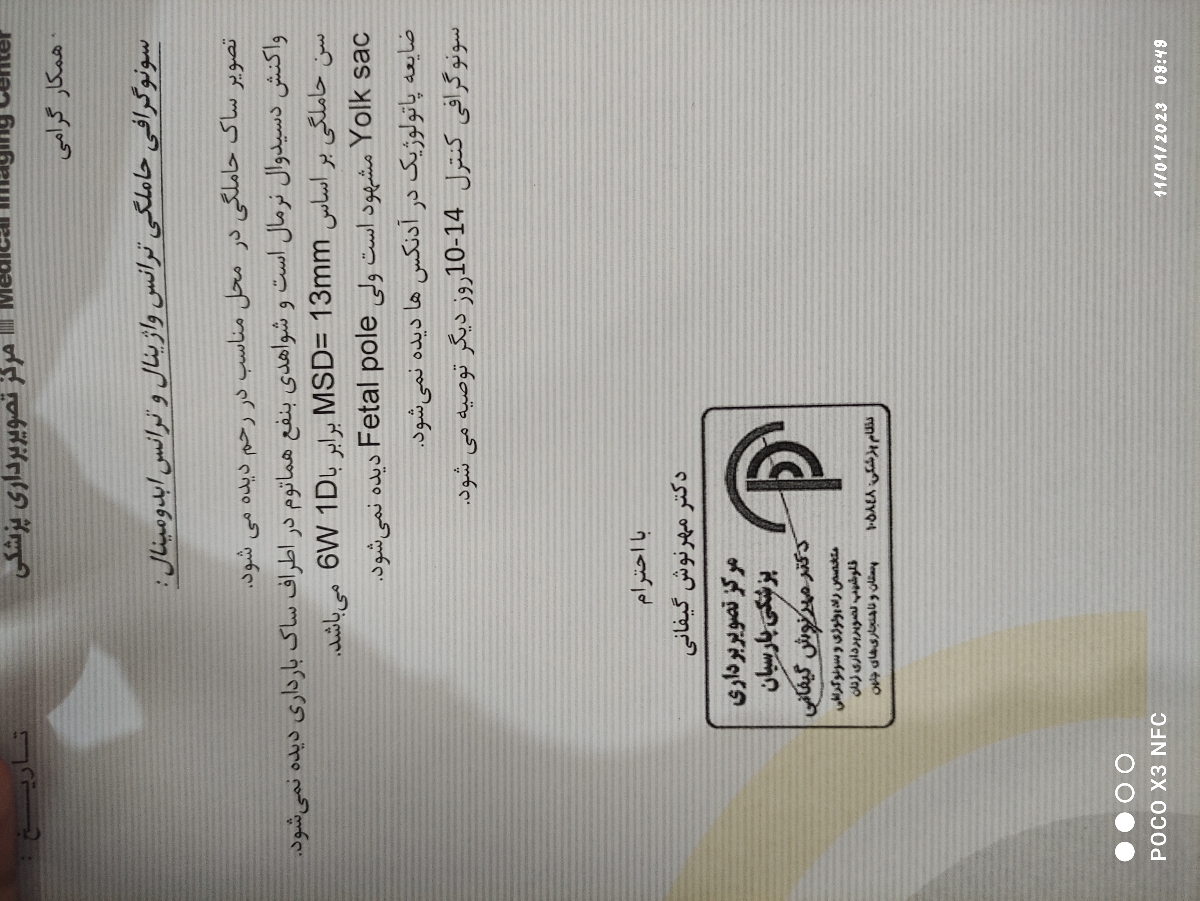 مرکز تصویربرداری پزشکی Medical Imaging Center
تـاریـــخ :
همکار گرامی
سونوگرافی حاملگی ترانس واژینال و ترانس ابدومینال :
تصویر ساک حاملگی در محل مناسب در رحم دیده می شود.
واکنش دسیدوال نرمال است و شواهدی بنفع هماتوم در اطراف ساک بارداری دیده نمی‌شود.
سن حاملگی بر اساس MSD= 13mm برابر با 6W 1D می‌باشد.
Yolk sac مشهود است ولی Fetal pole دیده نمی‌شود.
ضایعه پاتولوژیک در آدنکس ها دیده نمی‌شود.
سونوگرافی کنترل 10-14روز دیگر توصیه می شود.
با احترام
دکتر مهرنوش گیفانی
مرکز تصویربرداری
پزشکی پارسیان
دکتر مهرنوش گیفانی
متخصص رادیولوژی و سونوگرافی
فلوشیپ تصویربرداری زنان
پستان و ناهنجاری‌های جنین
نظام پزشکی: ۱۰۵۸۴۸
POCO X3 NFC
11/01/2023 09:49